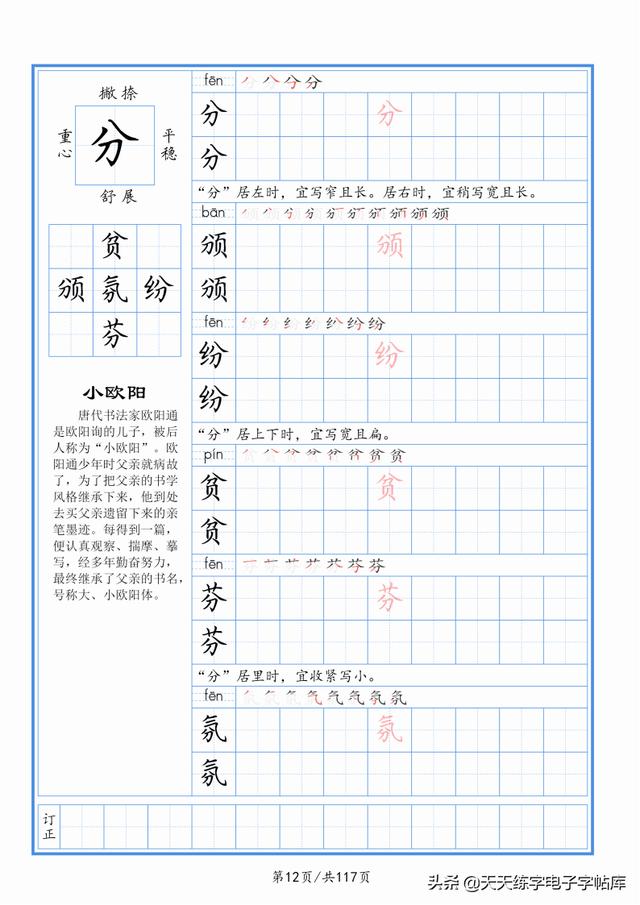 撇捺
重心
分
平稳
舒展
贫
颁 氛 纷
芬
小欧阳
唐代书法家欧阳通
是欧阳询的儿子，被后
人称为“小欧阳”。欧
阳通少年时父亲就病故
了，为了把父亲的书学
风格继承下来，他到处
去买父亲遗留下来的亲
笔墨迹。每得到一篇，
便认真观察、揣摩、摹
写，经多年勤奋努力，
最终继承了父亲的书名，
号称大、小欧阳体。
fēn
分 分
分
“分”居左时，宜写窄且长。居右时，宜稍写宽且长。
bān
颁 颁
颁
fēn
纷 纷
纷
“分”居上下时，宜写宽且扁。
pín
贫 贫
贫
fēn
芬 芬
芬
“分”居里时，宜收紧写小。
fēn
氛 氛
氛
订正
第12页/共117页
头条 @天天练字电子字帖库